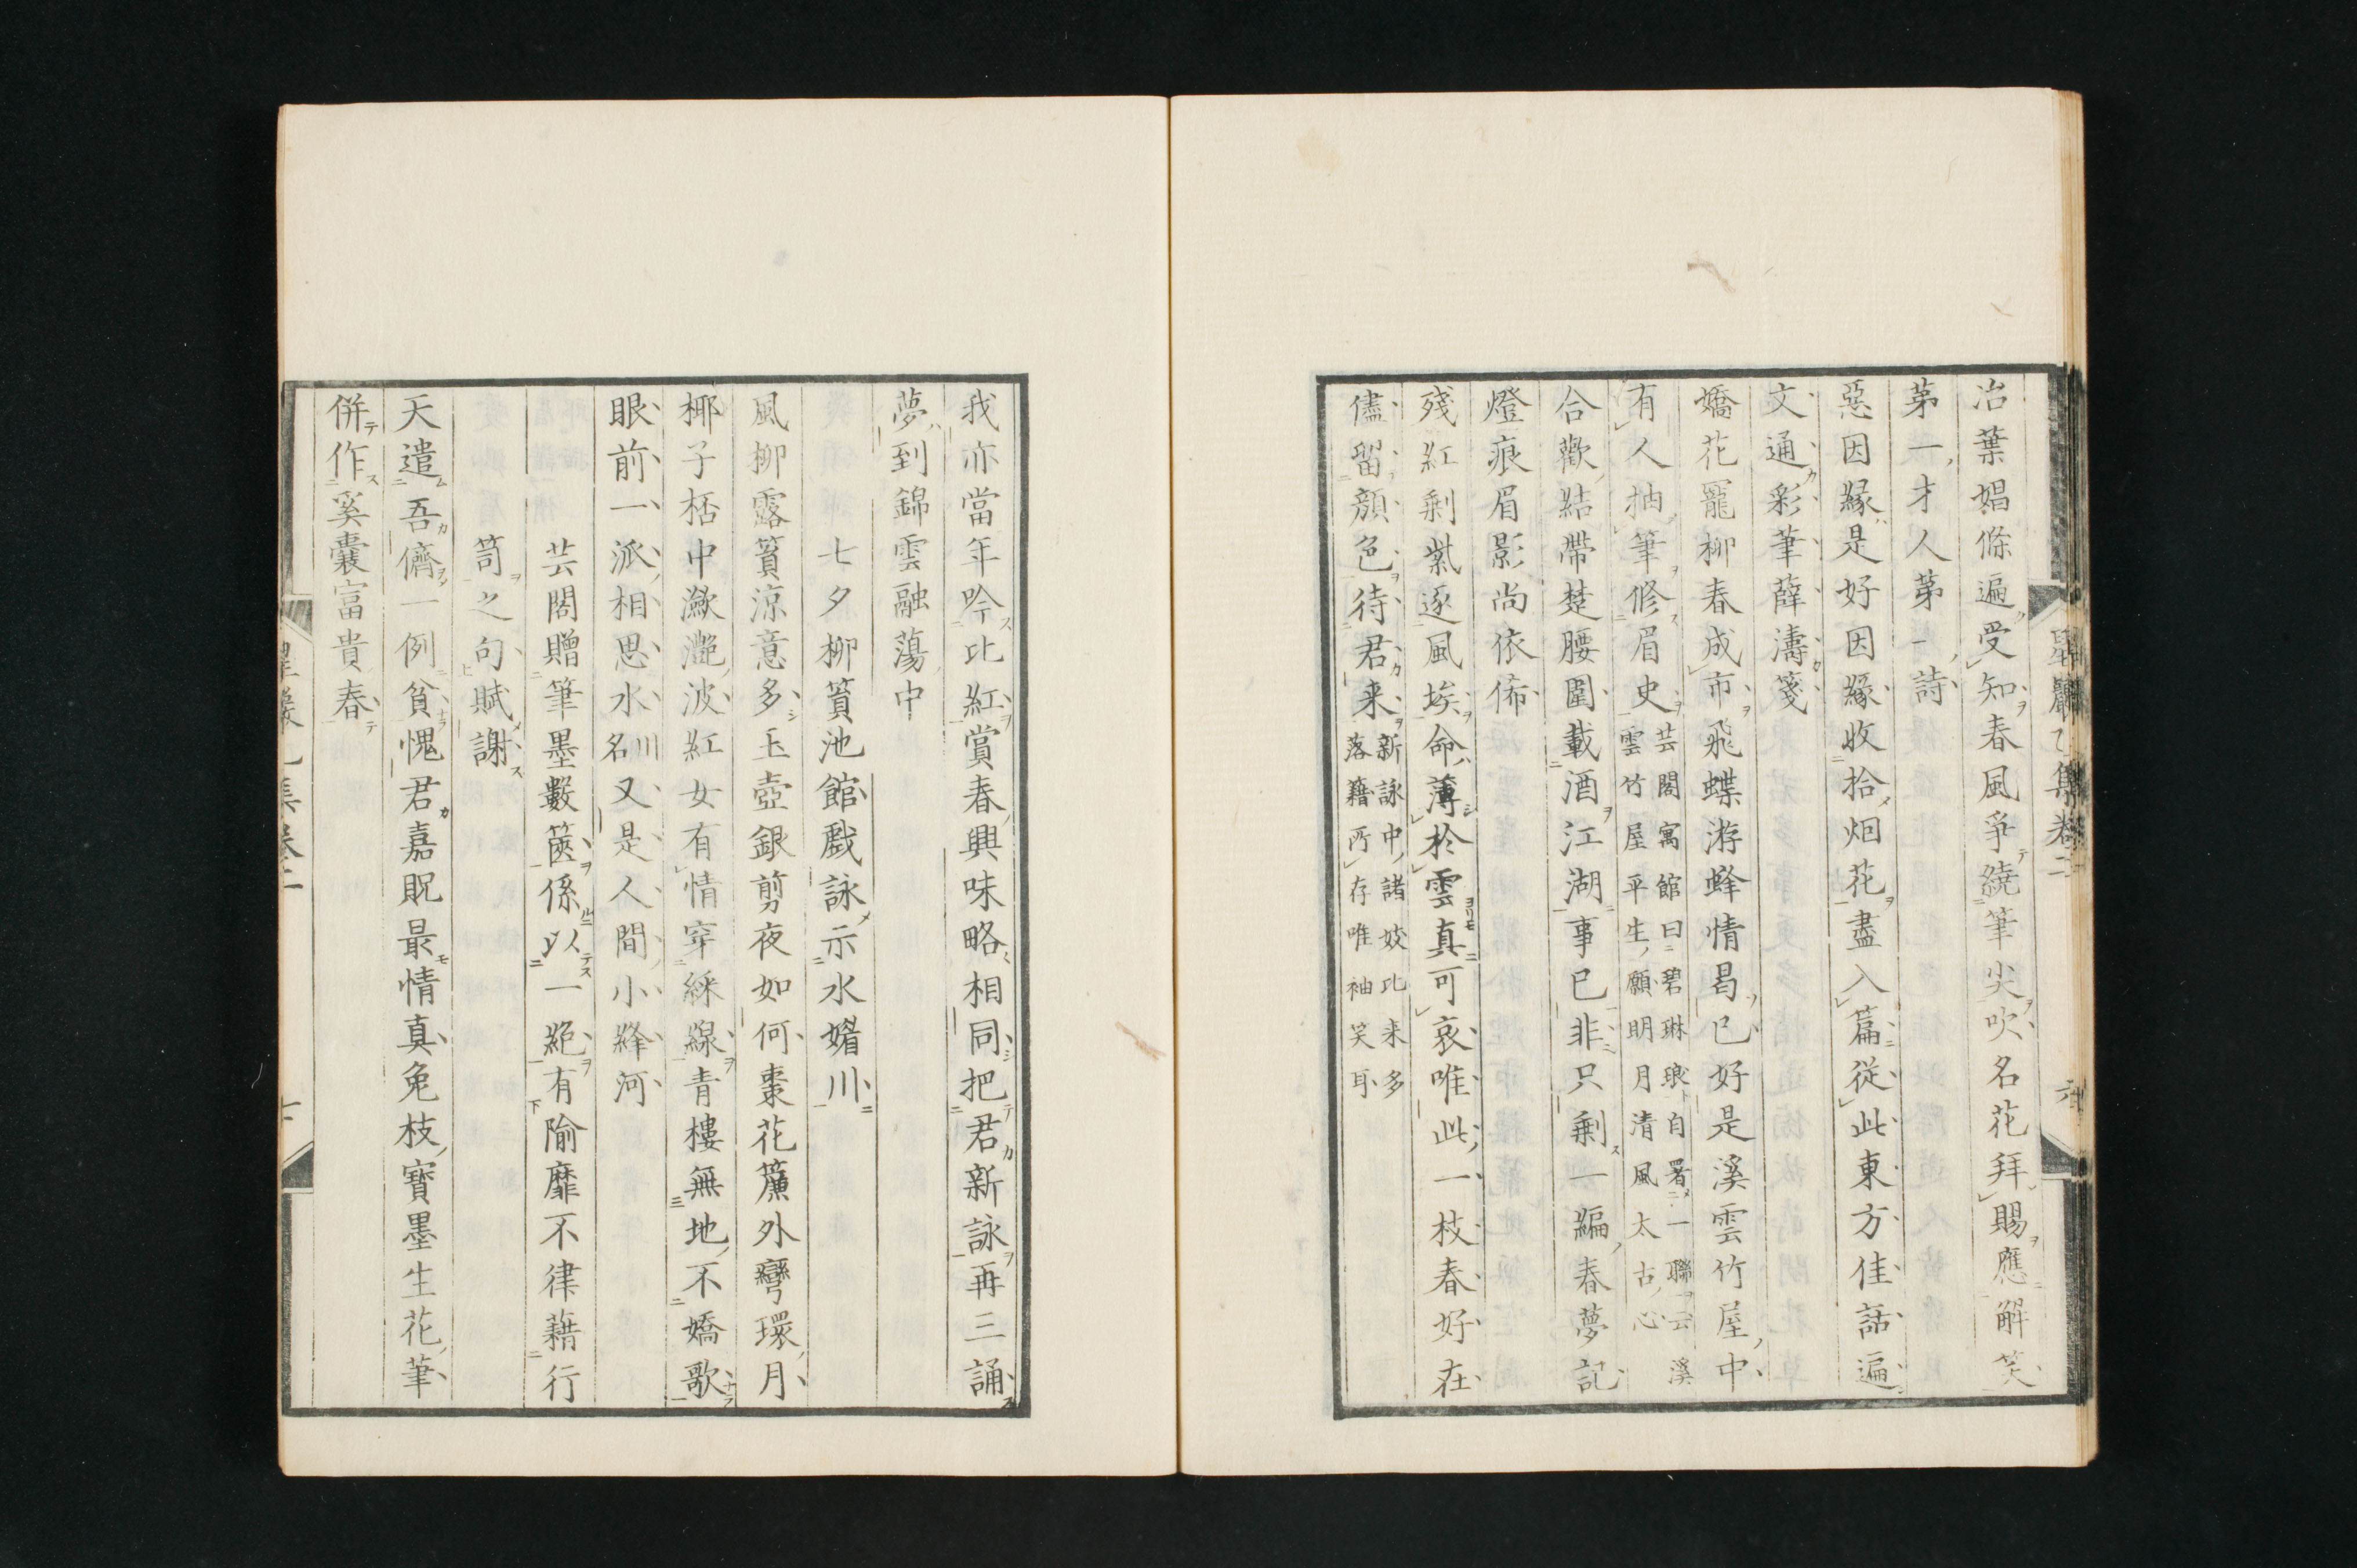 冶葉娼條遍受知春風爭繞筆尖吹名花拜賜應解笑
苐一才人苐一詩
惡因緣是好因緣收拾烟花盡入篇從此東方佳話遍
文通彩筆薛濤箋
嬌花寵柳春成市飛蝶游蜂情曷已好是溪雲竹屋中
有人抽筆修眉史芸閣寓館曰碧琳琅自署一聯云溪
雲竹屋平生願明月清風太古心
合歡結帶楚腰圍載酒江湖事已非只剩一編春夢記
燈痕眉影尚依俙
殘紅剩紫逐風埃命薄於雲真可哀唯此一枝春好在
儘留顔色待君来新詠中諸妓比来多
落籍所存唯袖笑耳
星巖乙集卷二
六
我亦當年吟比紅賞春興味略相同把君新詠再三誦
夢到錦雲融蕩中
七夕柳篢池館戲詠示水媚川
風柳露篢涼意多玉壺銀剪夜如何棗花簾外彎環月
椰子桮中瀲灔波紅女有情穿綵線青樓無地不嬌歌
眼前一派相思水川名又是人間小絳河
芸閣贈筆墨數篋係以一絶有隃麋不律藉行
笥之句賦謝
天遣吾儕一例貧愧君嘉貺最情真兔枝寶墨生花筆
併作奚囊富貴春